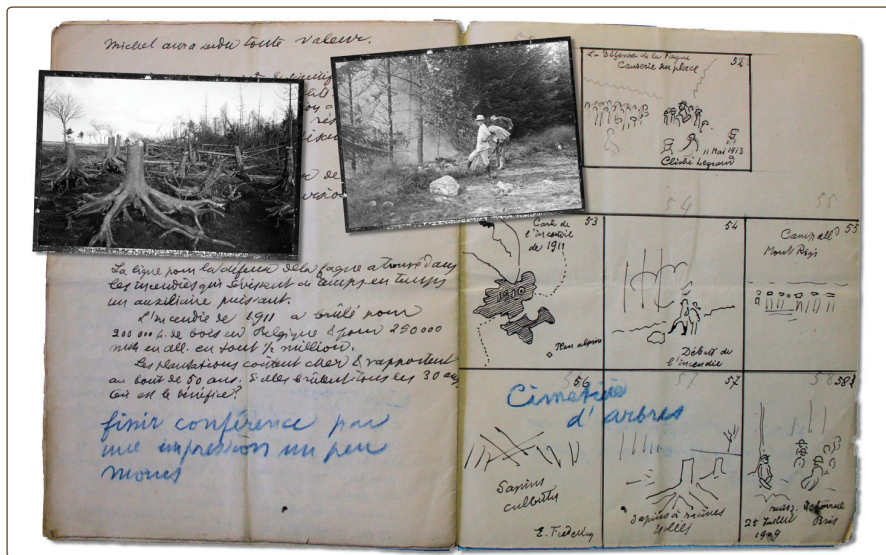 Michel aura perdu toute valeur.
La ligue pour la défense de la fagne a trouvé dans
les incendies qui sévissent de temps en temps
un auxiliaire puissant.
L'incendie de 1911 a brûlé pour
200 000 f. de bois en Belgique & pour 250 000
en all. en tout ½ million.
Les plantations coûtent cher & rapportent
au bout de 50 ans. Si elles brûlent tous les 30 ans
où est le bénéfice?
finir conférence par
une impression un peu
moins
La Défense de la Fagne 52
Causerie sur place
11 Mai 1913
Cliché Legrand
54 55
53
Carte de
l'incendie
de 1911
1900
54
Début de
l'incendie
55
Camp all
Mont Rigi
56
Sapins
culbutés
E. Frederic
Cimetière
d'arbres
57
Sapins à racines
58
25 Juillet
1909